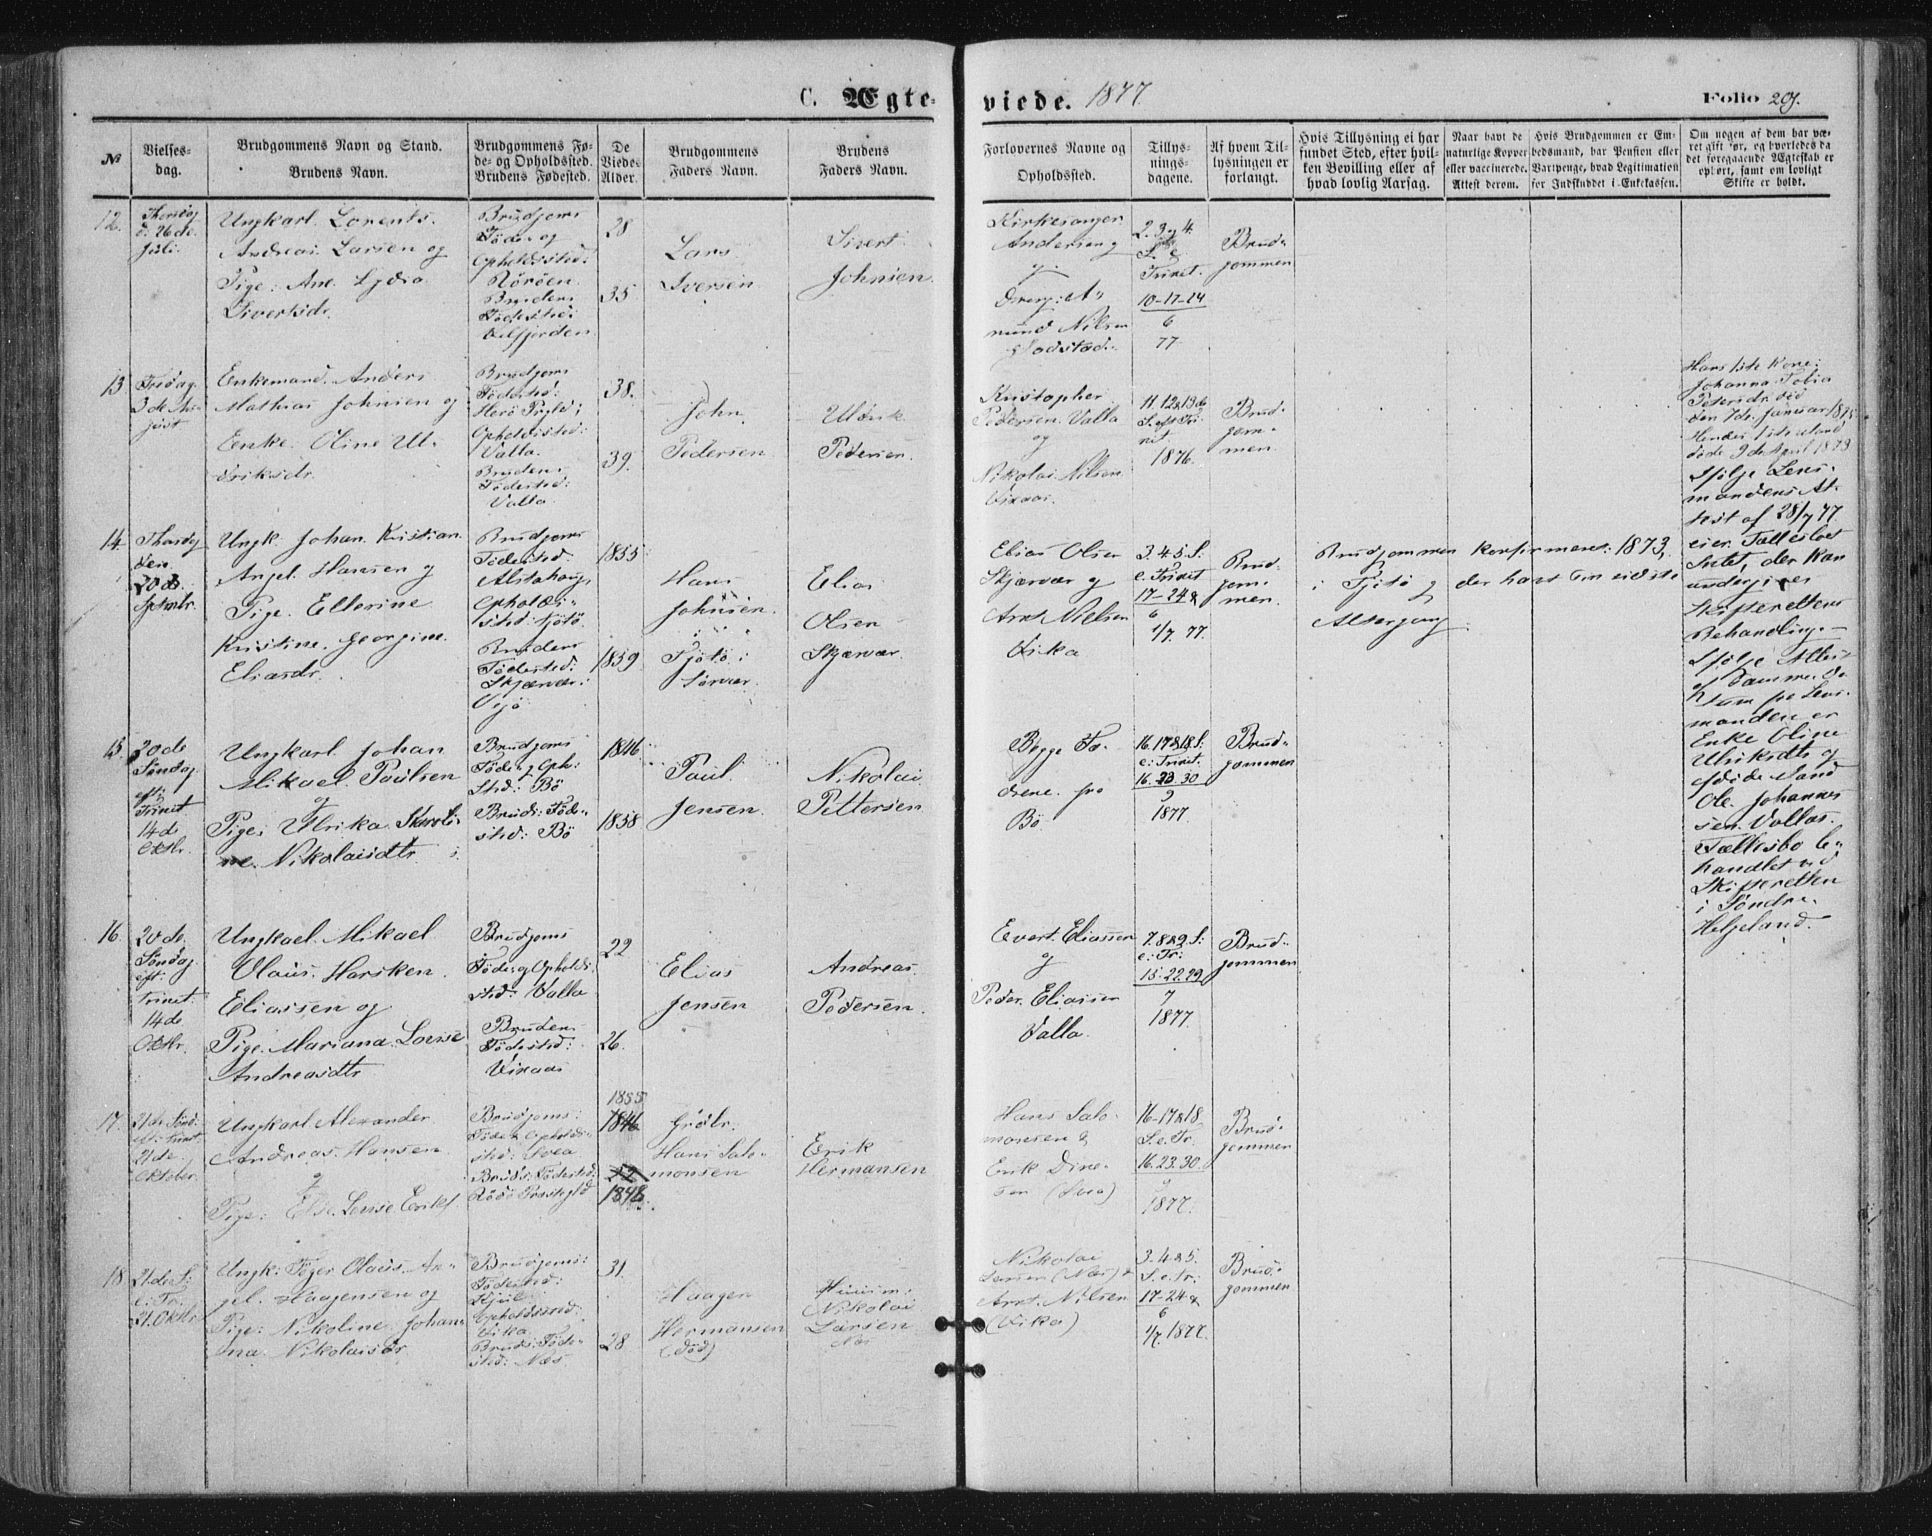 C. Ægteviede. 1877
Folio 207.
№
Vielsesdag.
Brudgommens Navn og Stand.
Brudens Navn.
Brudgommens Føde- og Opholdssted.
Brudens Fødested.
De Viedes Alder.
Brudgommens Faders Navn.
Brudens Faders Navn.
Forlovernes Navne og Opholdssted.
Tillysningsdagene.
Af hvem Tillysningen er forlangt.
Hvis Tillysning ei har fundet Sted, efter hvilken Bevilling eller af hvad lovlig Aarsag.
Naar havt de naturlige Kopper eller vaccinerede. Attest derom.
Hvis Brudgommen er Embedsmand, har Pension eller Vartpenge, hvad Legitimation for Indskuddet i Enkekassen.
Om nogen af dem har været gift før, og hvorledes da det foregaaende Ægteskab er opløst, samt om lovligt Skifte er holdt.
12.
Thorsdag
d. 26de
Juli.
Ungkarl Lorents
Andreas Larsen og
Pige: Ane Lydia
Sivertsdr.
Brudgoms
Føde- og
Opholdssted:
Rørøen.
Brudens
Fødested:
Velfjorden
28
35
Lars
Iversen
Sivert
Johnsen.
Kirkesanger
Andersen
og
Amund Nilsen
2. 3 og 4.
S. e.
Trinit.
10-17-24
6
77
Brudgommen
13
Fredag
3de August
Enkemand Anders
Mathias Johnsen og
Enke Oline Ulriksdr.
Brudgoms
Fødested:
Herø Prgld;
Opholdssted:
Valla.
Brudens
Fødested:
Valla.
38.
39.
John
Pedersen
Ulrik
Pedersen
Kristopher
Pedersen Valla
og
Nikolai Nilsen
Vixaas.
11. 12 & 13de
S. eft Trinit
1876.
Brudgommen.
Hans 1ste Kone:
Johanna Tobia
Petersdr. død
den 7de Januar 1875
Hendes 1ste Mand
døde 9de April 1873
Ifølge Lensmandens Attest af 28/7 77
eier Fællesboet
Intet, der kan
undergives
Skifterettens
Behandling.
Ifølge Attest
af samme Datum fra Lensmanden er
Enke Oline
Ulriksdtr og
afdøde Mand
Ole Johannessen Vallas
Fællesbo behandlet ved
Skifteretten
i Søndre
Helgeland.
14.
Thorsdag
den
20de
Septmbr.
Ungk. Johan Kristian
Angel Hansen og
Pige. Ellerine
Kristine Georgine
Eliasdr.
Brudgoms
Fødested.
Alstahoug.
Opholdssted: Tjøtø.
Brudens
Fødested:
Skjærvær i
Vejø
1855
1859
Hans
Johnsen.
Tjøtø i
Sørvær.
Elias
Olsen
Skjærvær.
Elias Olsen
Skjærvær og
Arnt Nielsen
Vika
3. 4. 5. S.
e. Trinit
17-24 &
6
1/7. 77.
Brudgommen.
Brudgommen konfirmeret: 1873,
i Tjøtø og der havt sin sidste
Altergang.
15.
20de
Søndag
eft.
Trinit
14de
Oktbr.
Ungkarl Johan
Mikael Paulsen
og
Pige: Ulrika
Nikolaisdtr
Brudgoms
Føde- og Opholdssted: Bø
Bruds: Fødested: Bø
1846
1858
Paul
Jensen.
Nikolai
Pettersen
Begge Fædrene fra
Bø
16. 17 & 18. S:
e: Trinit.
16. 23. 30
9
1877.
Brudgommen
16.
20de
Søndag
eft.
Trinit.
14de
Oktbr.
Ungkael Mikael
Olaus Harsken
Eliassen og
Pige. Mariana Lovise
Andreasdtr
Brudgoms
Føde- og Opholdssted: Valla
Brudens
Fødested:
Vixaas
22
26.
Elias
Jensen
Andreas
Pedersen.
Evert Eliassen
og
Peder Eliassen
Valla.
7. 8 & 9. S:
e: Tr:
15. 22. 29
7
1877.
Brudgommen
17.
21de Sønd.
eft. Trinit.
21de
Oktober.
Ungkarl Alexander
Andreas Hansen
og
Pige: Else Lovise Eriksd
Brudgoms:
Føde & Opholdssted: Svea
Bruds: Fødested.
Rødø Præstegld
1855
1846
1848.
Grdbr.
Hans Salomonsen
Erik
Hermansen
Hans Salomonsen &
Erik
(Svea)
16-17 & 18
S. e. Tr.
16. 23. 30
9
1877.
Brudgommen
18
21de S:
e: Tr:
21. Oktbr
Ungk: Peger Olaus Angel Haagensen og
Pige: Nikoline Johanna Nikolaisdr.
Brudgoms:
Fødested:
Opholdssted:
Vika
Bruds: Fødested: Næs
31.
28
Haagen
Hermansen
(død)
Husm:
Nikolai
Larsen
Næs
Nikolai
Larsen (Næs) &
Arnt Nilsen
(Vika)
3. 4 & 5.
S. e. Tr.
17-24 &
6
1/7. 1877.
Brudgommen